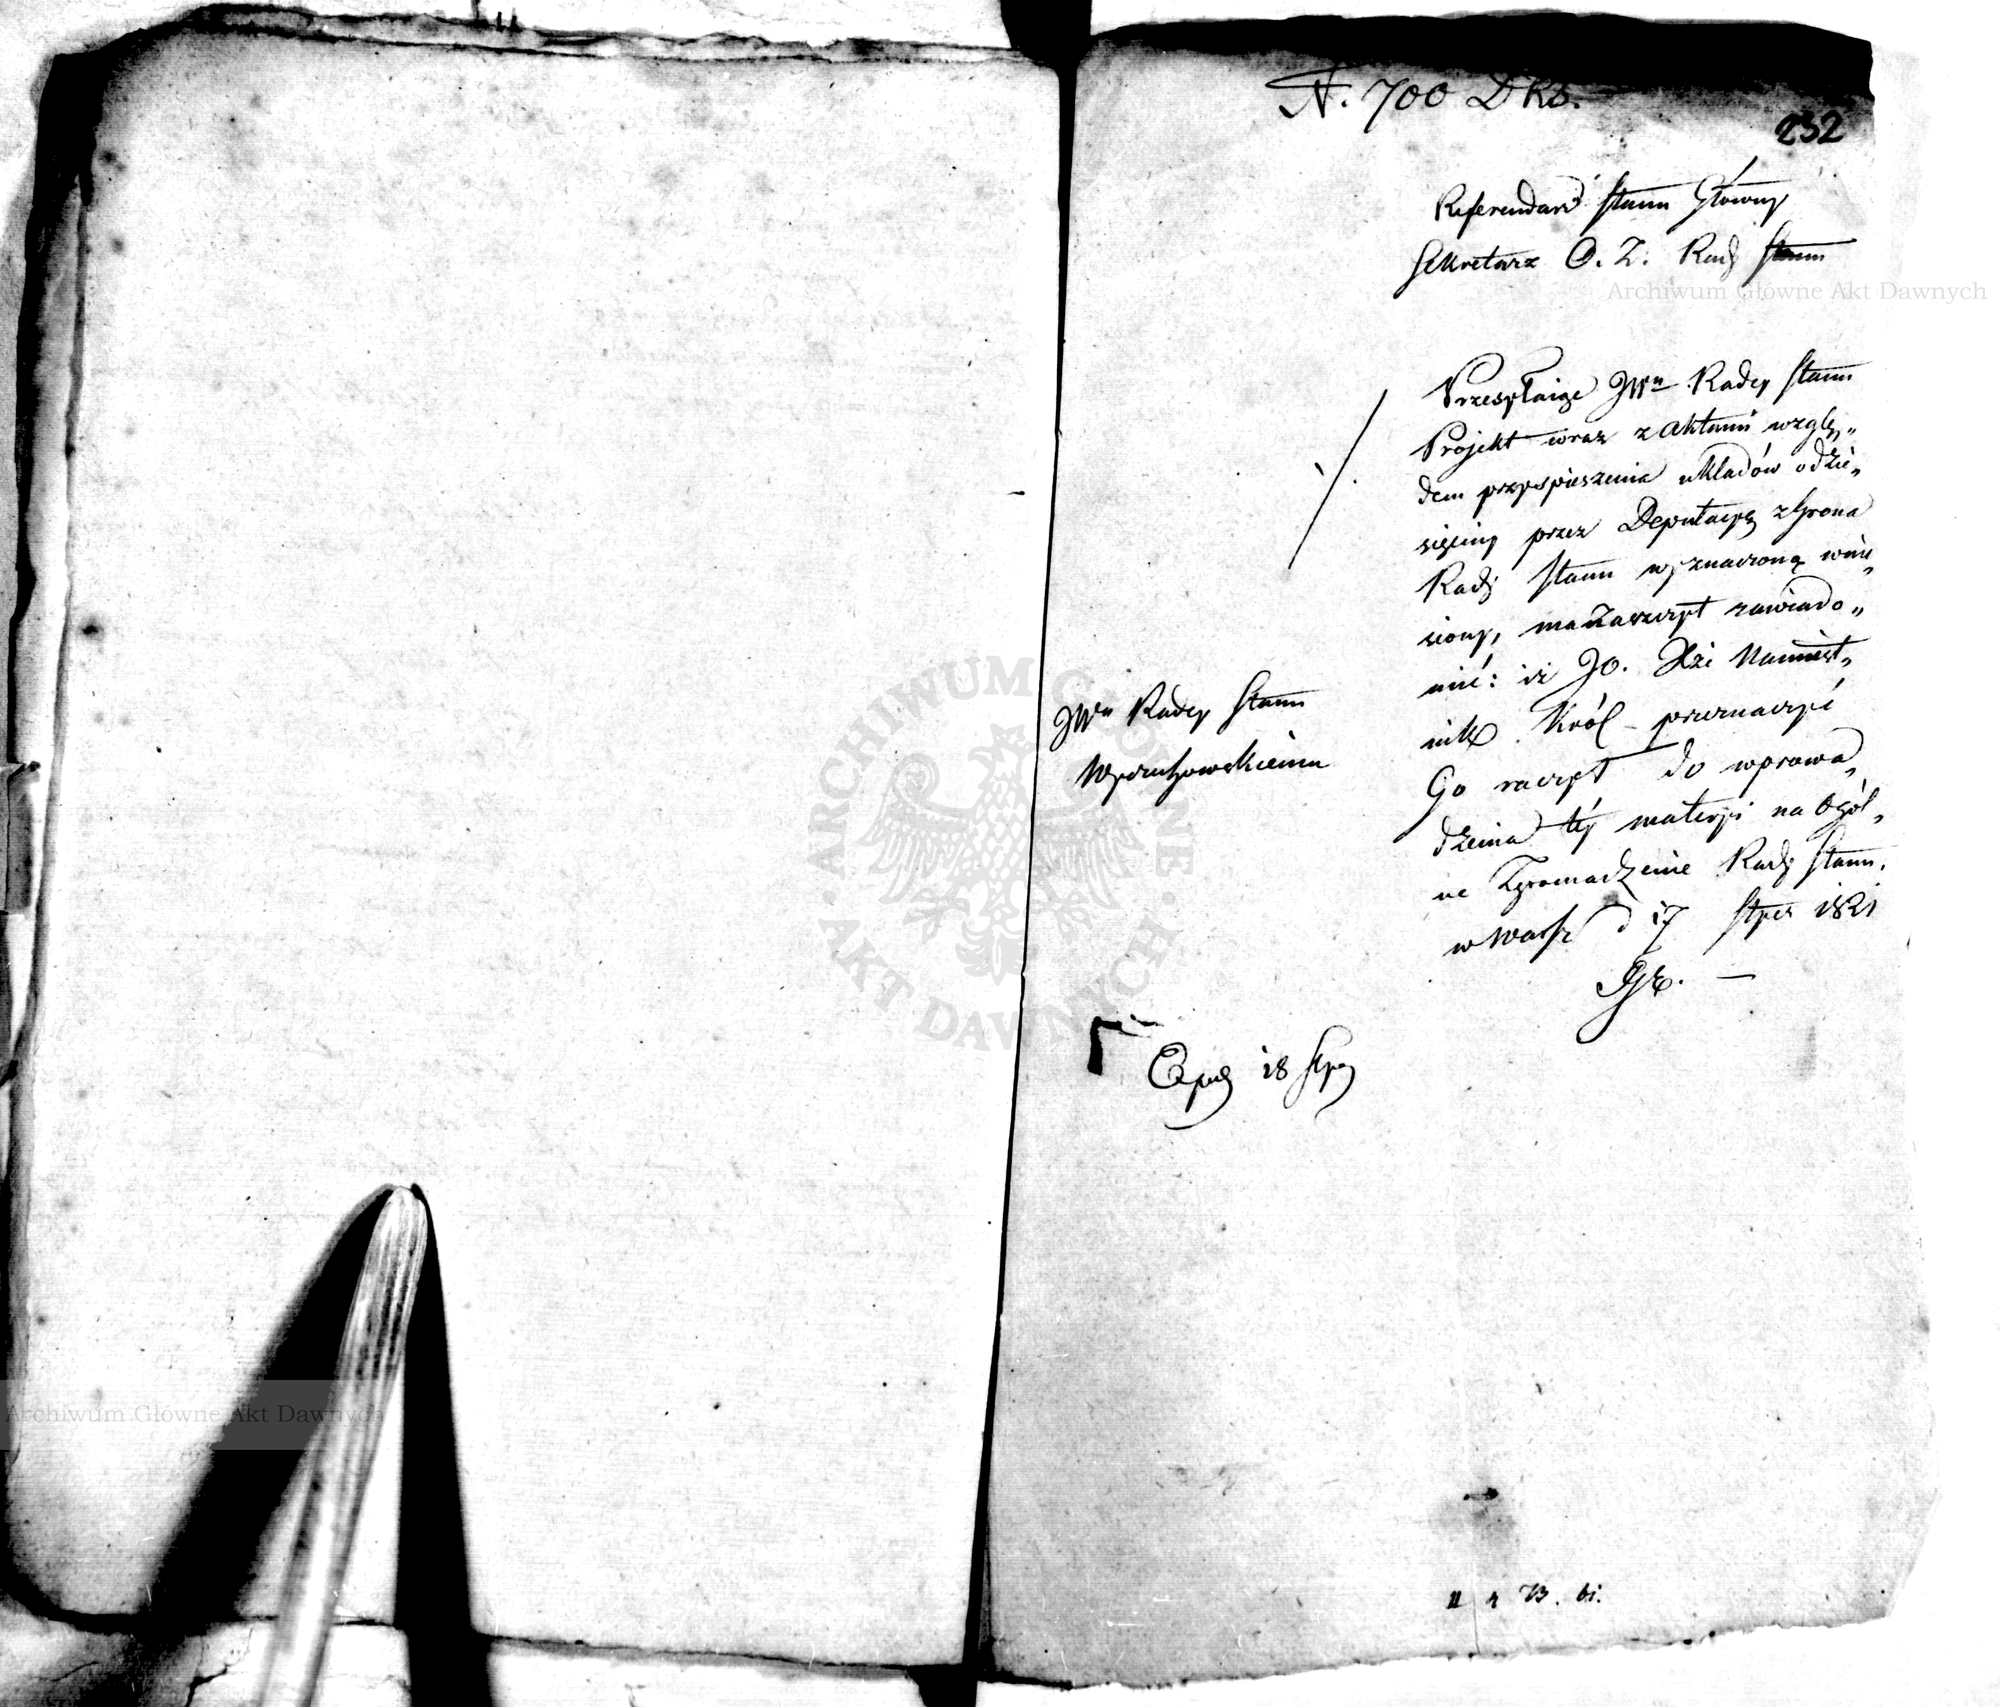 N. 700 DKS.
232
Referendarz Stanu Główny
Sekretarz O. Z. Rady Stanu
Przesyłaiąc JWu Radcy Stanu
Projekt wraz z Aktami wzglę„
dem przyspieszenia układów o dzie„
sięciny przez Deputacyą z Grona
Rady Stanu wyznaczoną wnie„
siony, ma zaszczyt zawiado„
mić: iż JO. Xże Namiest„
nik Król przeznaczyć
Go raczył do wprowa„
dzenia téy materyi na Ogól„
ne Zgromadzenie Rady Stanu.
w Warsz d 17 Stycz 1821
JWu Radcy Stanu
Wyczechowskiemu
Exped 18 Stycz
Archiwum Główne Akt Dawnych
ARCHIWUM GŁÓWNE
AKT DAWNYCH
Archiwum Główne Akt Dawnych